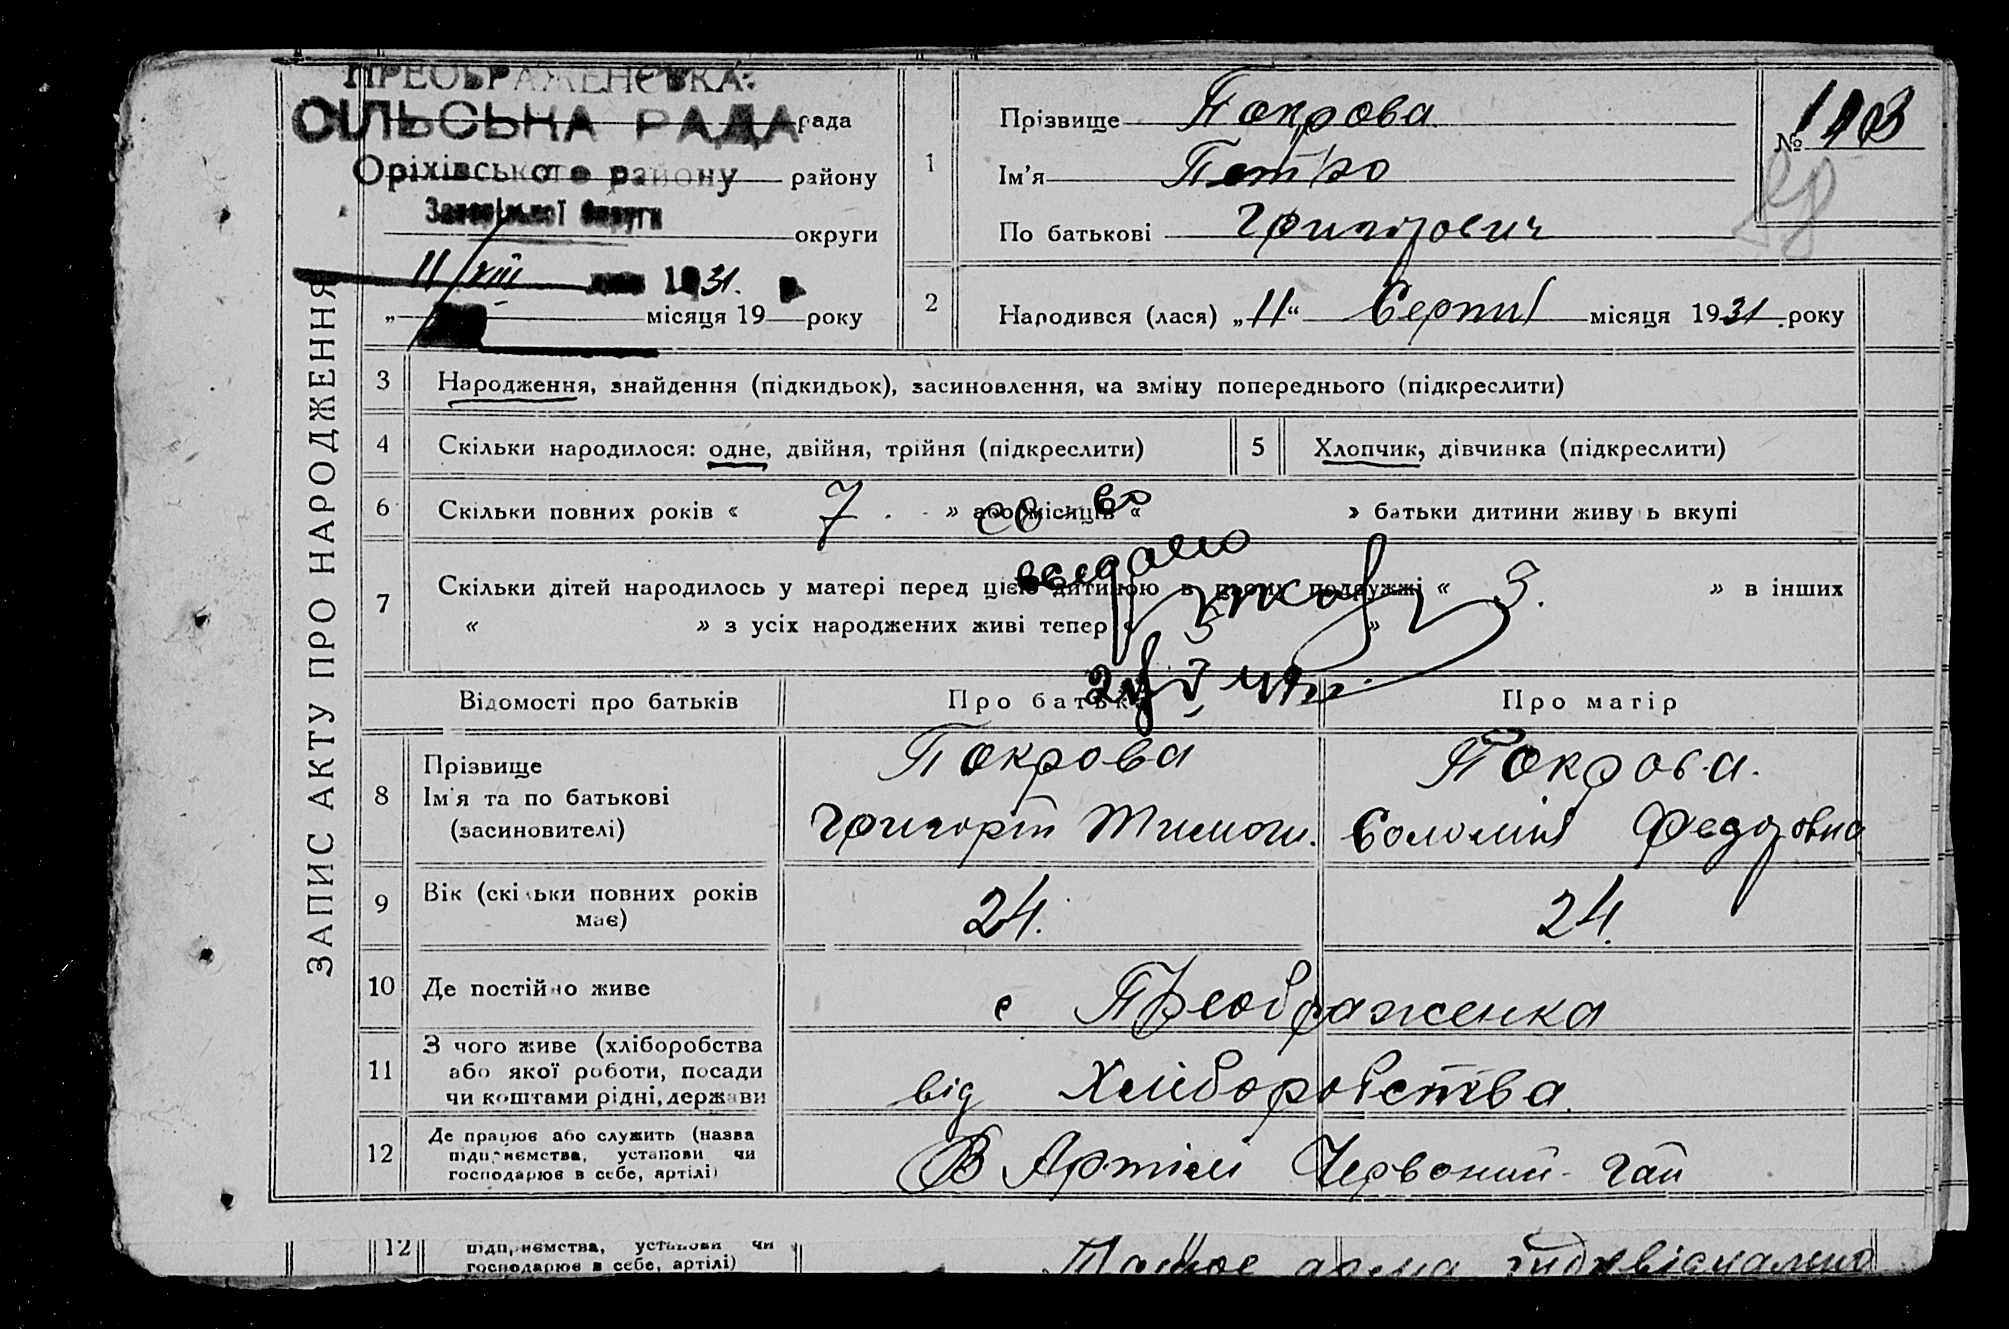 ПРЕОБРАЖЕНСЬКА
СІЛЬСЬКА РАДА рада
Оріхівського району району
округи
11/VIII 1931 р
„ місяця 19 року
ЗАПИС АКТУ ПРО НАРОДЖЕННЯ
1
Прізвище Покрова
Ім'я Петро
По батькові Григорович
№
2
Народився (лася) „11“ Серпня місяця 1931 року
3 Народження, знайдення (підкидьок), засиновлення, на зміну попереднього (підкреслити)
4 Скільки народилося: одне, двійня, трійня (підкреслити)
5 Хлопчик, дівчинка (підкреслити)
6 Скільки повних років « 7 . » або місяців « » батьки дитини живуть вкупі
св-во
видано
7 Скільки дітей народилось у матері перед цією дитиною в цьому подружжі « 3. » в інших
« » з усіх народжених живі тепер « 3 »
Відомості про батьків Про батька Про матір
8 Прізвище Покрова Покрова.
Ім'я та по батькові
(засиновителі) Григорій Тимоги. Соломія Федоровна
9 Вік (скільки повних років
має) 24. 24.
10 Де постійно живе с Преображенка
11 З чого живе (хліборобства
або якої роботи, посади
чи коштами рідні, держави від Хліборобства.
12 Де працює або служить (назва
підприємства, установи чи
господарює в себе, артілі) В Артілі Червоний-гай
12 підприємства, установи чи
господарює в себе, артілі)